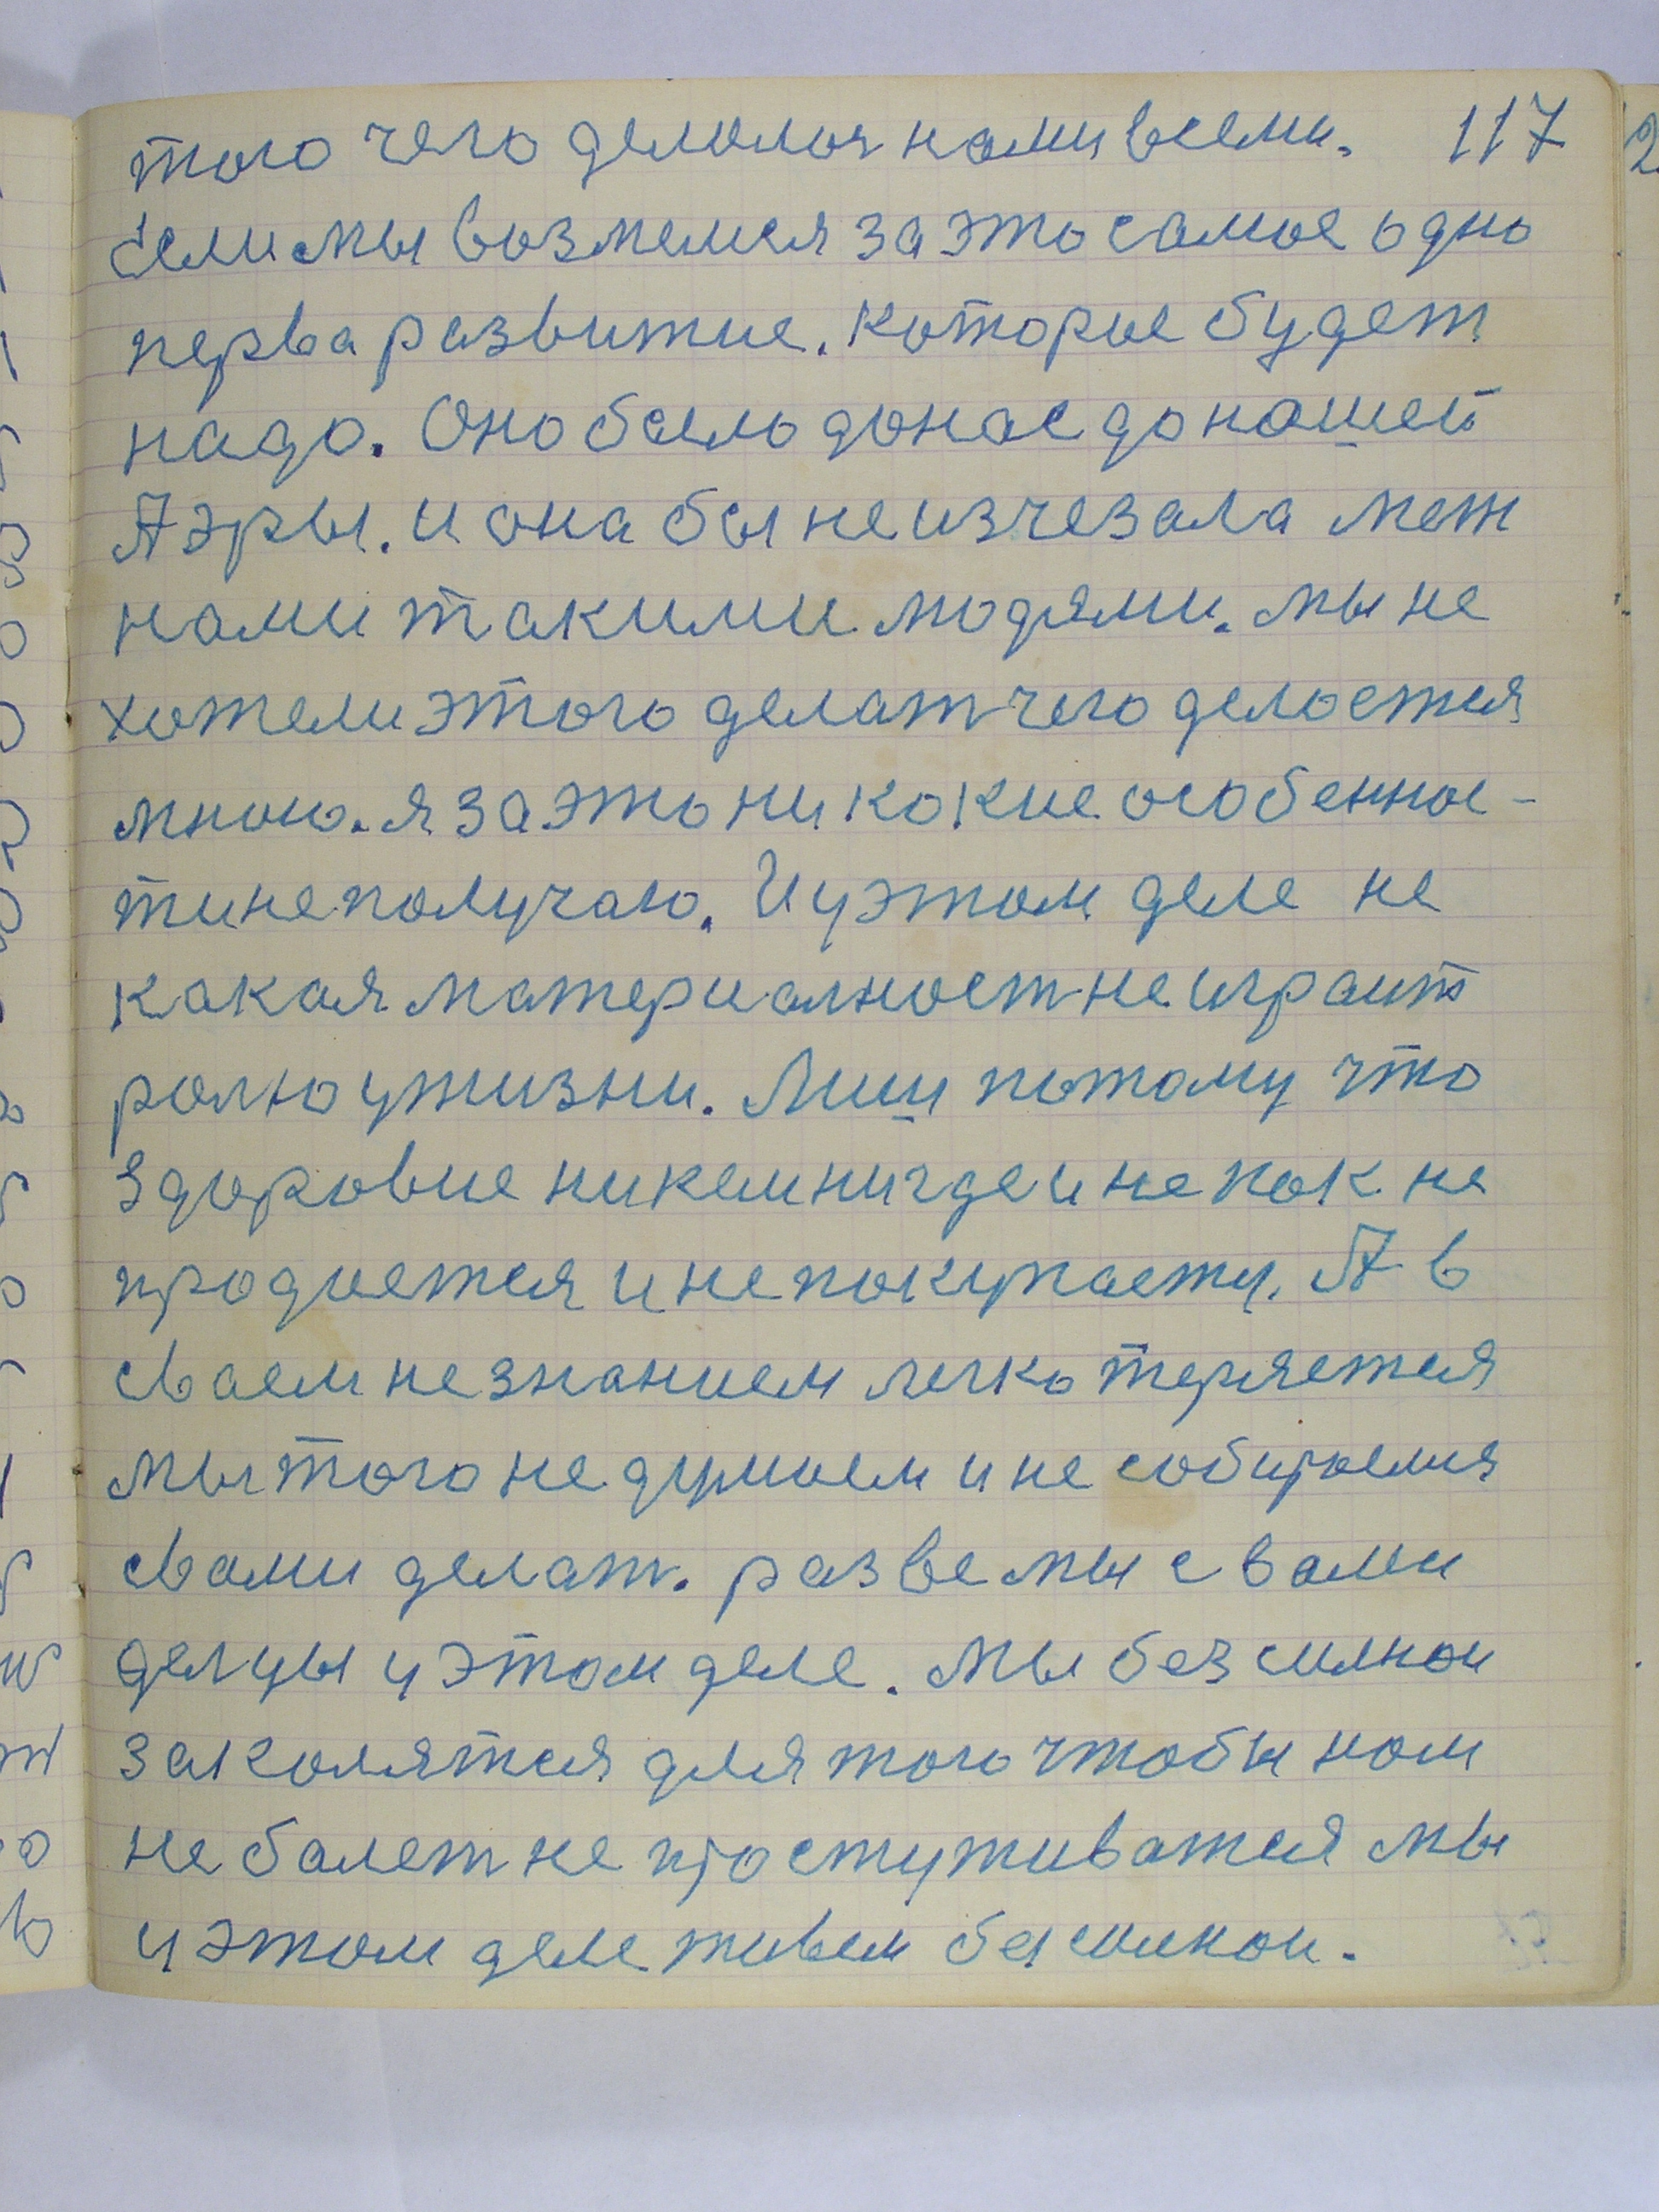 того чего делалоя нами всеми. 117
Если мы возмемся за это самое одно
перва развитие. которое будет
надо. Оно было до нас до нашей
Аэры. и она бы не изчезала меж
нами такими людями. мы не
хотели этого делат чего делается
мною. я за это никокие особеннос-
ти не получаю. И у этом деле не
какая материалност не играит
ролю у жизни. Лиш потому что
здоровие никем ничде и не как не
продается и не покупаетц. А в
сваем незнанием легко теряется
мы того не думаем и не собираемся
свами делат. разве мы с вами
делцы у этом деле. мы безсилнои
закалятся для того чтобы нам
не балет не простуживатся мы
у этом деле живем бесилнои.